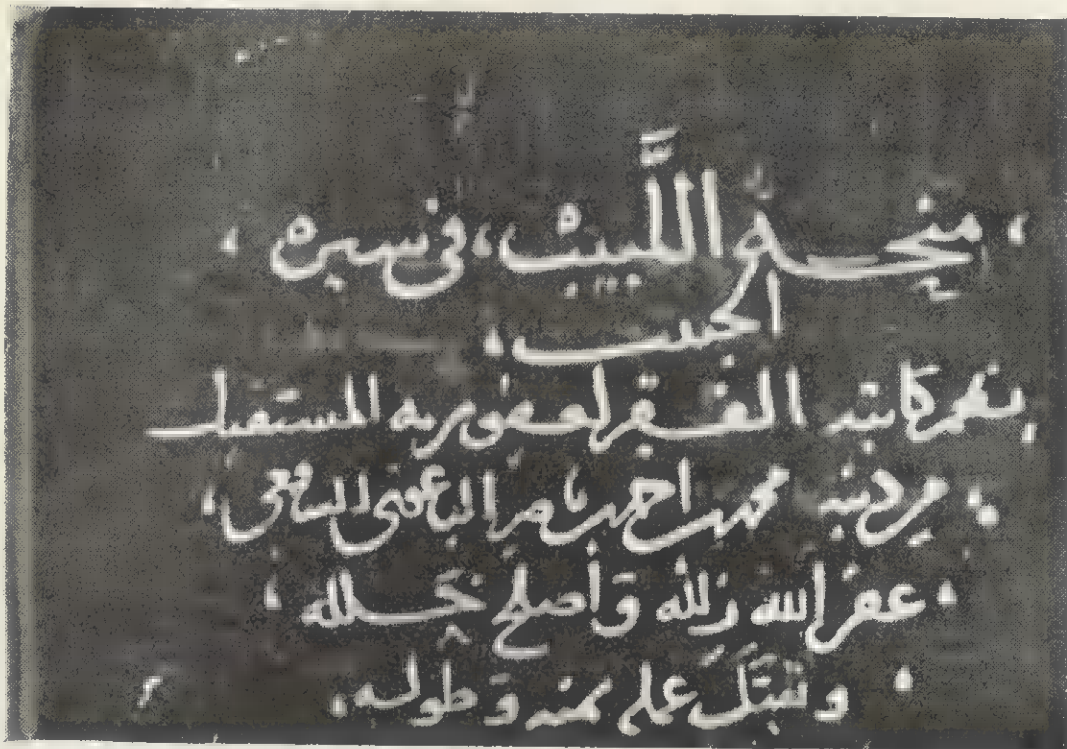 منحة اللَّبيب، في سيرة
الحبيب
بقلم كاتبه الفقير لعفو ربه المستقيل
من ذنبه محمد احمد با الشافعي
عفر الله زلله وَأصلح خلله
وتقبَّل عمله بمنه وَطوله